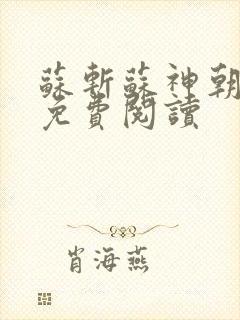 蘇斬蘇神朝
免費閱讀
肖海燕